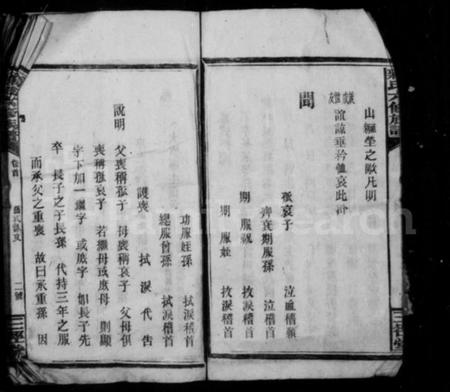 山緬塋之啟凡明
議戚世友
誼諒垂矜恤哀此訃
聞
孤哀子 泣血稽顙
齊衰期服孫 泣稽首
期服 抆淚稽首
期服姪 抆淚稽首
功服姪孫 拭淚稽首
緦服曾孫 拭淚稽首
護喪 拭淚代告
說明 父喪稱孤子 母喪稱哀子 父母俱
喪稱孤哀子 若繼母或庶母 則顯
字下加一繼字 或庶字 如長子先
卒 長子之子長孫 代持三年之服
而承父之重喪 故曰承重孫 因
卷首
二號
三徑堂